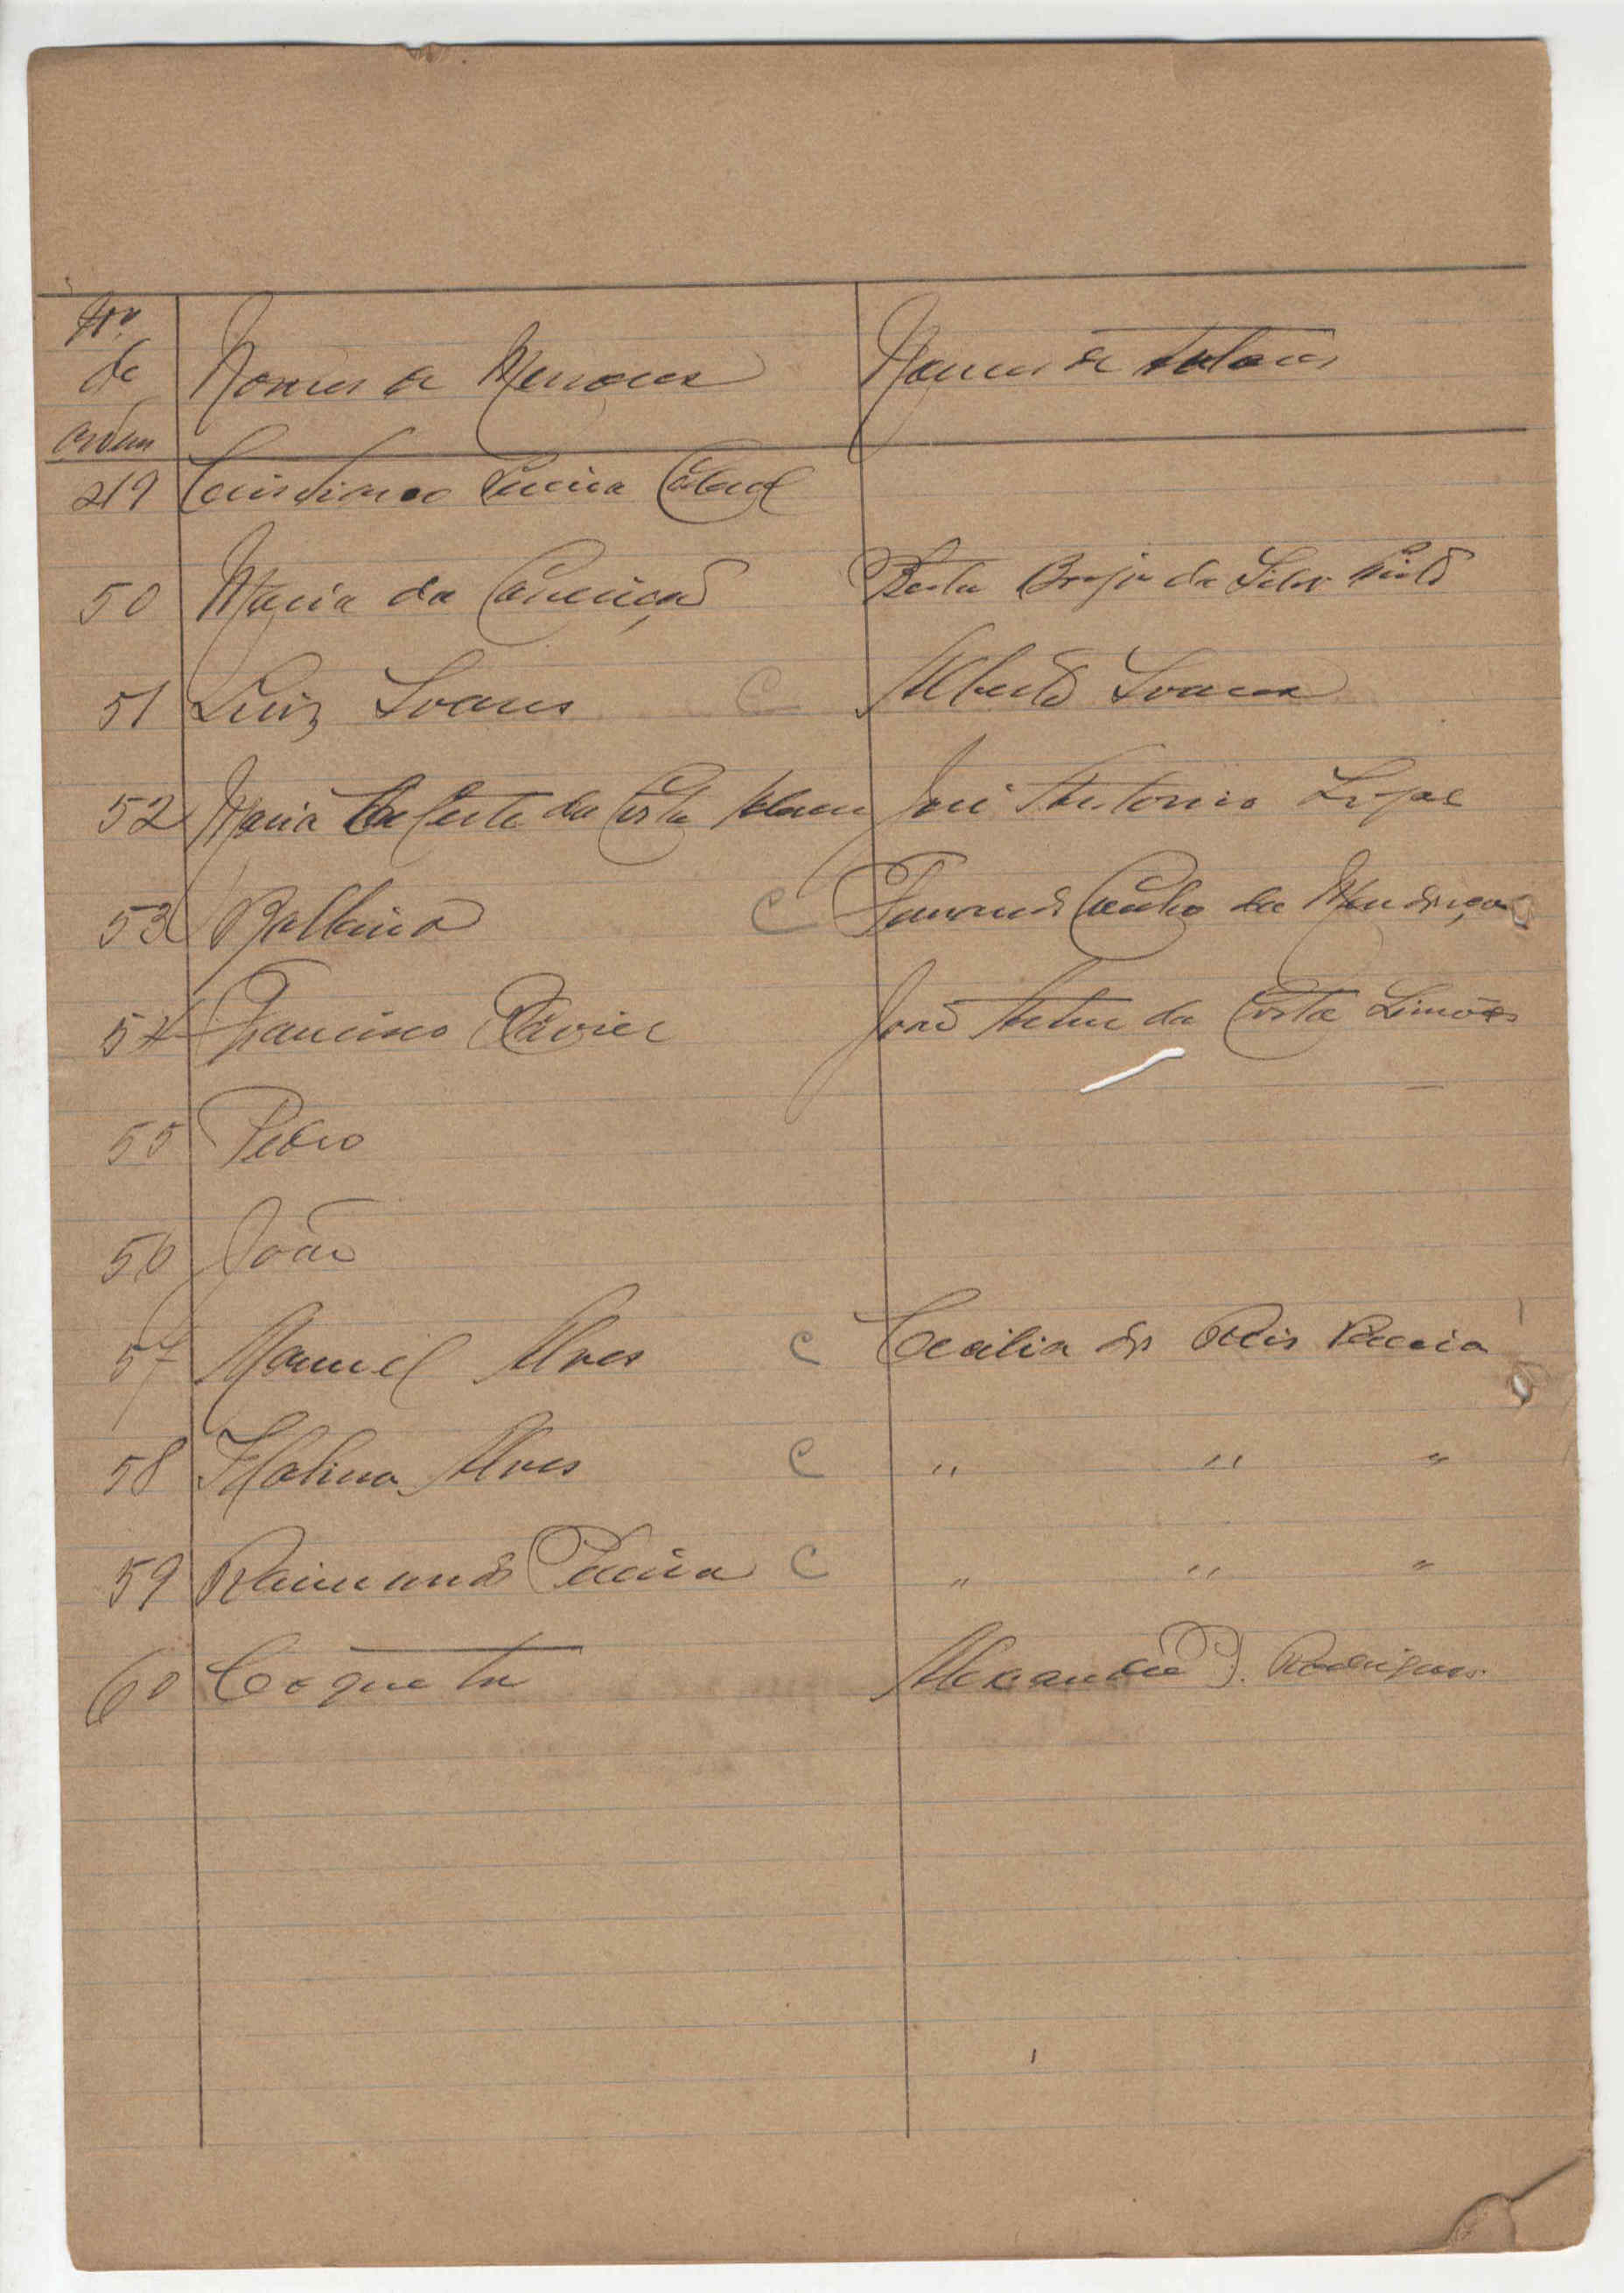 Nº
de
ordem
Nomes de Menores
Nomes de Tutores
49 Cristiano Pereira Cabral
50 Maria da Conceição Berta da Silva Pinto
51 Luiz Soares C Alberto Soares
52 Maria Celeste da Costa José Antonio Lopes
53 Balbina C Fernando Coelho de Mendonça
54 Francisco Xavier João Artur da Costa Simões
55 Pedro
56 João
57 Manuel Alves C Cecilia dos Reis Pereira
58 Alves C " " "
59 Raimundo Pereira C " " "
60 Coqueta Alexandre J. Rodrigues